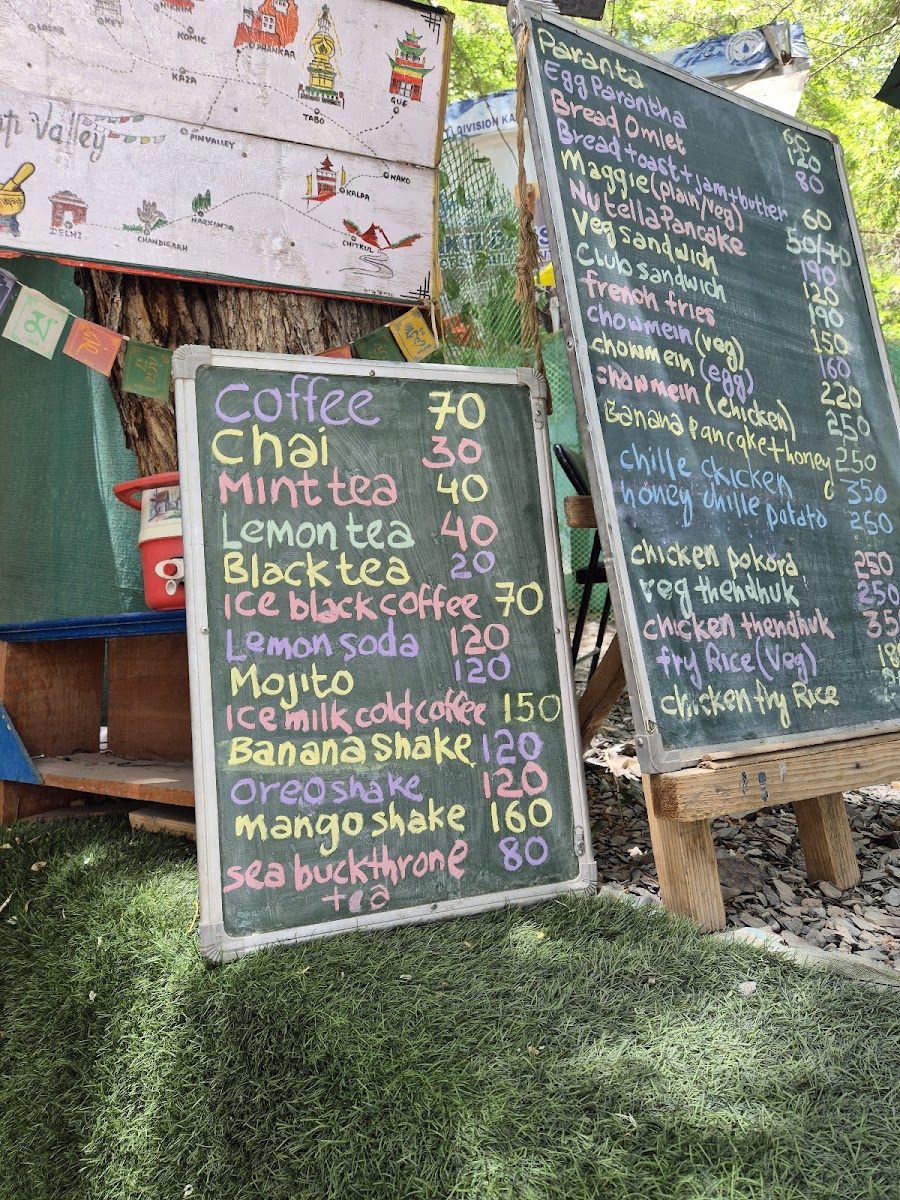 KEY
LOSAR
KOMIC
DHANKAR
KAZA
TABO
GUE
PIN VALLEY
Valley
NAKO
KALPA
DELHI
CHANDIGARH
NARKANDA
CHITKUL
DIVISION KA
Coffee 70
Chai 30
Mint tea 40
Lemon tea 40
Black tea 20
ice black coffee 70
Lemon soda 120
Mojito 120
ice milk cold coffee 150
Banana shake 120
oreo shake 120
mango shake 160
sea buckthrone 80
tea
Paranta 60
Egg Parantha 120
Bread Omlet 80
Bread toast+jam+butter 60
Maggie(plain/veg) 50/70
Nutella Pancake 190
Veg sandwich 120
Club sandwich 190
french fries 150
chowmein(veg) 160
chowmein (egg) 220
chowmein (chicken) 250
Banana pancake+honey 250
chille ckicken 350
honey chille potato 250
chicken pokora 250
veg thendhuk 250
chicken thendhuk 35
fry Rice(Veg) 18
chicken fry Rice